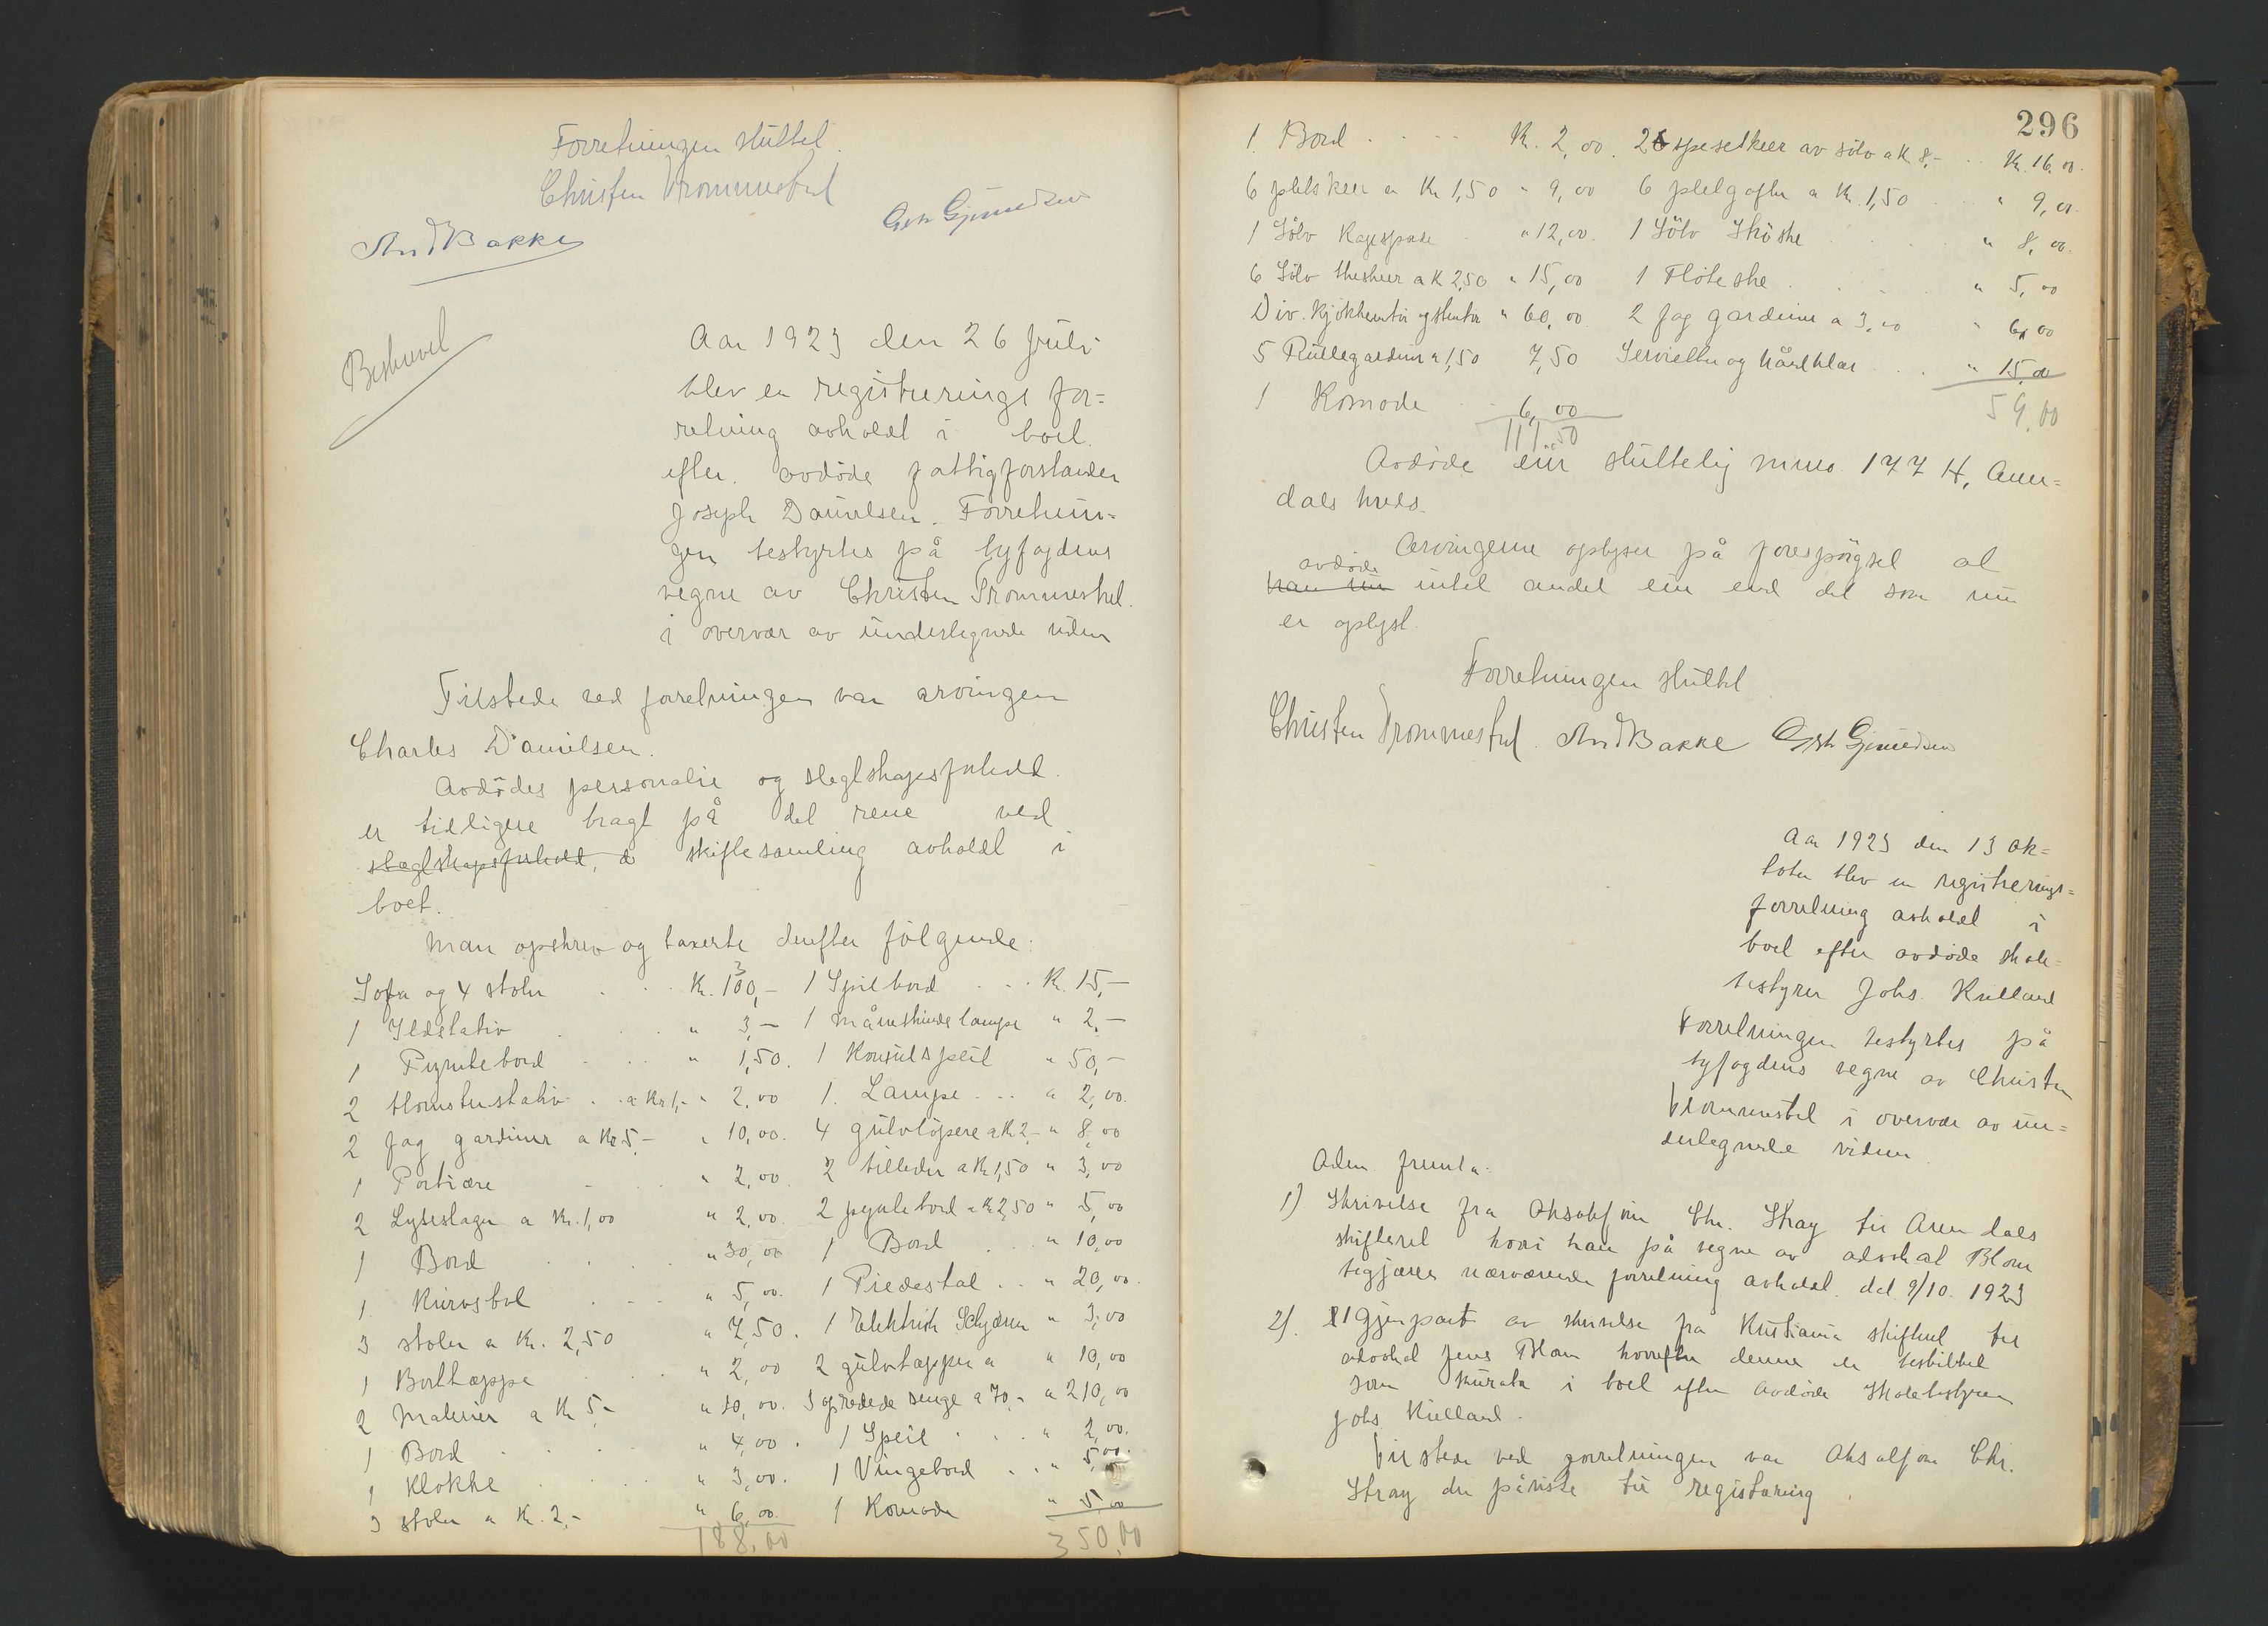 Forretningen sluttet.
Christen Trommestad
And Bakke
Gjeruldsen
Beskrevet
Aar 1923 den 26 juli
blev en registrerings for=
retning avholdt i boet
efter avdøde fattigforstander
Joseph Danielsen. Forretnin-
gen bestyrtes på byfogdens
vegne av Christen Trommestad
i overvær av undertegnede vidner
Tilstede ved forretningen var arvingen
Charles Danielsen.
Avdødes personalie og slegtskapsforhold
er tidligere bragt på det rene ved
slegtskapsforhold, skiftesamling avholdt i
boet.
Man opskrev og taxerte derefter følgende:
Sofa og 4 stoler . . Kr. 100,- 1 Spilbord . . . Kr. 15,-
1 Ildstativ . . . " 3,- 1 Måneskinslampe " 2,-
1 Pyntebord . . . " 1,50. 1 Konsulspeil " 50,-
2 Blomsterstativ . . a Kr 1,- " 2,00 1. Lampe . . . " 2,00.
2 fag gardiner a Kr 5,- " 10,00. 4 gulvløpere a Kr 2,- " 8,00
1 Portiere " 2,00. 2 billeder a Kr 1,50 " 3,00
2 Lysestager a Kr. 1,00 " 2,00. 2 pyntebord a Kr 2,50 " 5,00
1 Bord . . . . " 30,00 1 Bord . . " 10,00
1. Kurvstol . . . " 5,00. 1 Piedestal . . " 20,00.
3 stoler a Kr. 2,50 " 7,50. 1 Elektrisk " 3,00
1 Bordtæppe . . " 2,00 2 gulvtæpper a " 10,00
2 Malerier a Kr 5,- " 10,00. 3 opredede senge a 70,- " 210,00
1 Bord . . . . " 4,00. 1 Speil . . . " 2,00.
1 Klokke . . " 3,00. 1 Vingebord . . " 5,00.
3 stoler a Kr. 2,- " 6,00. 1 Komode " 5,00
188,00 350,00
296
1. Bord . . . . Kr. 2,00. 2 spiseskeer av sølv a K 8,- . . Kr. 16,00.
6 pletskeer a Kr 1,50 " 9,00 6 pletgafler a Kr. 1,50 . . " 9,00.
1 Sølv Kagespade " 12,00. 1 Sølv . . . " 8,00.
6 Sølv theskeer a K 2,50 " 15,00 1 Fløteske . . . " 5,00
Div. Kjøkkentøi og stentøi " 60,00 2 fag gardiner a 3,00 " 6,00
5 Rullegardiner a 1,50 7,50 Servietter og håndklær . . . " 15,00
1 Komode . . 6,00 59,00
111,50
Avdøde eier skattelig mno. 177 H, Aren=
dals
Arvingerne oplyser på forespørgsel at
avdøde
han nu intet andet eier end det som nu
er oplyst.
Forretningen sluttet
Christen Trommestad. And Bakke Gjeruldsen
Aar 1923 den 13 ok=
tober blev en registrerings=
forretning avholdt i
boet efter avdøde skole-
bestyrer Johs. Kielland
Forretningen bestyrtes på
byfogdens vegne av Christen
Trommestad i overvær av un=
dertegnede vidner
Aden fremla:
1) Skrivelse fra Chr. Stray til Arendals
skifteret hvori han på vegne av advokat Blom
begjærer nærværende forretning avholdt. dat 9/10. 1923
2). Gjenpart av skrivelse fra Kristiania skifteret til
advokat Jens Blom hvorefter denne er beskikket
som kurator i boet efter avdøde skolebestyrer
Johs. Kielland.
Tilstede ved forretningen var Chr.
Stray der påviste til registrering.